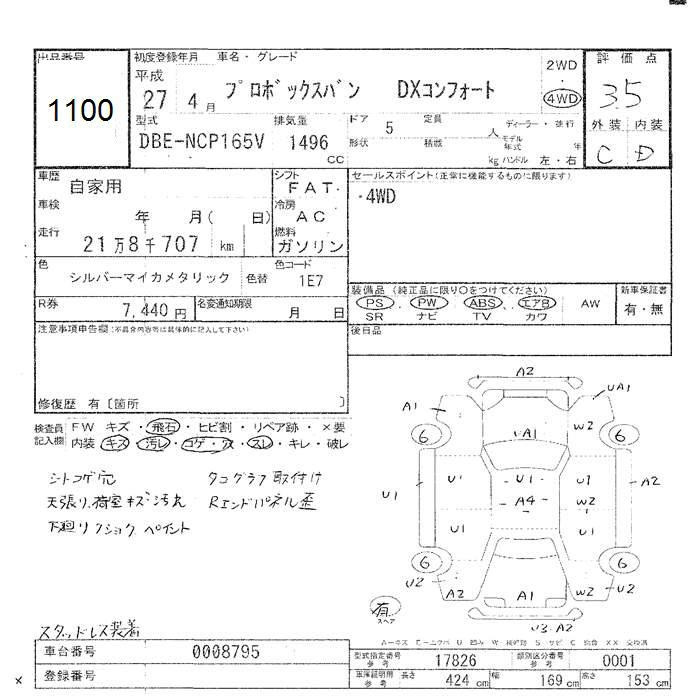 出品番号
1100
初度登録年月 車名・グレード
平成 27 4月 プロボックスバン DXコンフォート
2WD
・
4WD
評価点
3.5
外装 内装
C D
型式 排気量
DBE-NCP165V 1496 CC
ドア 5 定員 人 ディーラー・並行
形状 積載 kg モデル年式 年
ハンドル 左・右
車歴 自家用
シフト FAT
車検 年 月( 日)
冷房 AC
走行 21万8千707 km
燃料 ガソリン
セールスポイント(正常に機能するものに限ります)
・4WD
色 シルバーマイカメタリック 色替
色コード 1E7
R券 7,440円
名変通知期限 月 日
装備品 (純正品に限り○をつけてください)
PS・PW・ABS・エアB AW
SR ナビ TV カワ
新車保証書
有・無
後日品
注意事項申告欄(不具合内容等は具体的に記入して下さい)
修復歴 有〔箇所 〕
検査員記入欄
FW キズ・飛石・ヒビ割・リペア跡・×要
内装 キズ・汚レ・コゲ・穴・スレ・キレ・破レ
シートコゲ穴 タコグラフ取付け
天張り、荷室キズ・汚れ Rエンドパネル歪
下廻リ ショック ペイント
スタッドレス装着
A2
A1 UA1
W2
6 A1 6
U1 U1 U1 U1 A2
A4 W2
U1 U1
6 6
U2 A2 A1 W2 U2
有
スペア
U3・A2
車台番号 0008795
登録番号
×
型式指定番号 参考 17826 類別区分番号 参考 0001
車庫証明用 参考 長さ 424 cm 幅 169 cm 高さ 153 cm